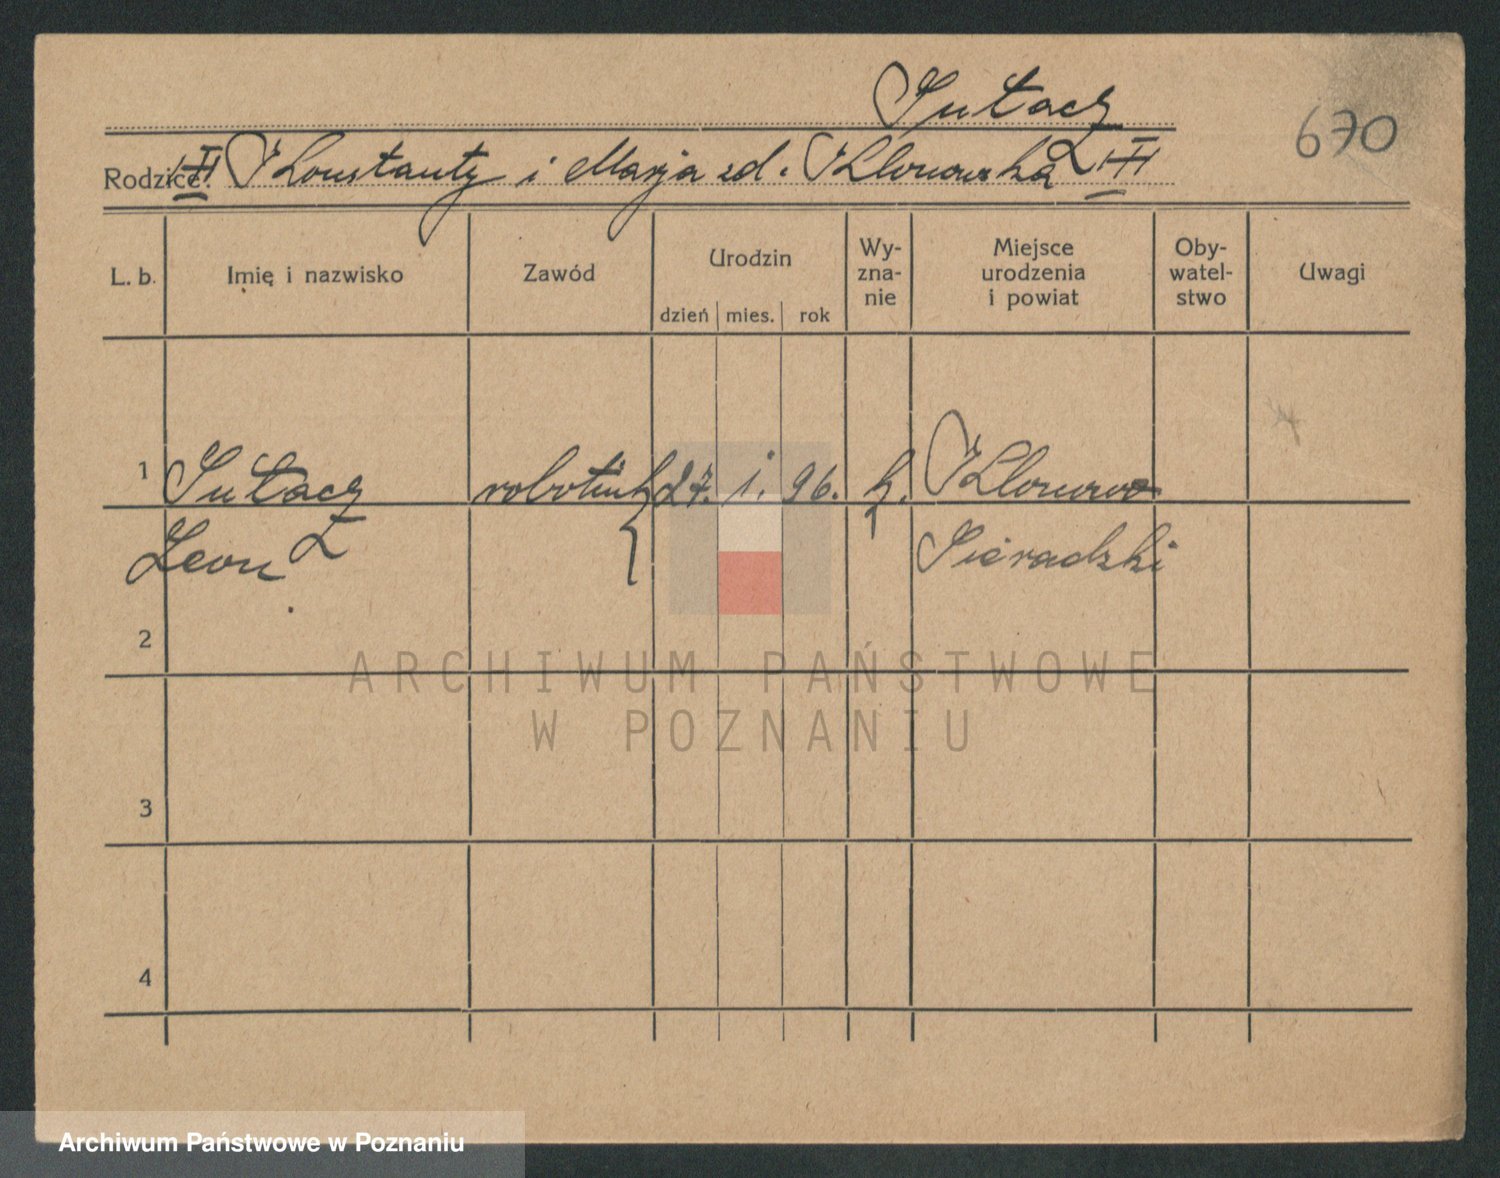 Sułacz
670
Rodzice: Konstanty i Marja zd. Klonowska
L. b.
Imię i nazwisko
Zawód
Urodzin
dzień mies. rok
Wy-
zna-
nie
Miejsce
urodzenia
i powiat
Oby-
watel-
stwo
Uwagi
1 Sułacz robotnik 27. 1. 96. k. Klonowo
Leon Sieradzki
2
3
4
ARCHIWUM PAŃSTWOWE
W POZNANIU
Archiwum Państwowe w Poznaniu